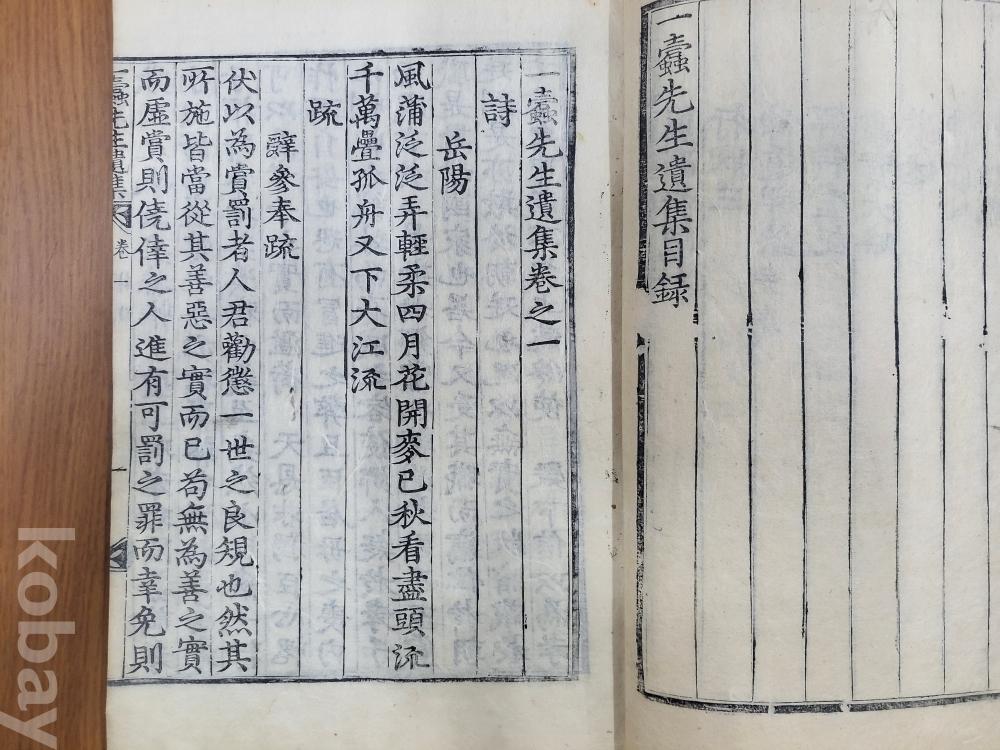 一蠹先生遺集目録
一蠹先生遺集卷之一
詩
岳陽
風蒲泛泛弄輕柔四月花開麥已秋看盡頭流
千萬疊孤舟又下大江流
疏
辭參奉疏
伏以為賞罰者人君勸懲一世之良規也然其
所施皆當從其善惡之實而已苟無為善之實
而虛賞則僥倖之人進有可罰之罪而幸免則
一蠹先生遺集 卷一 一
kobay